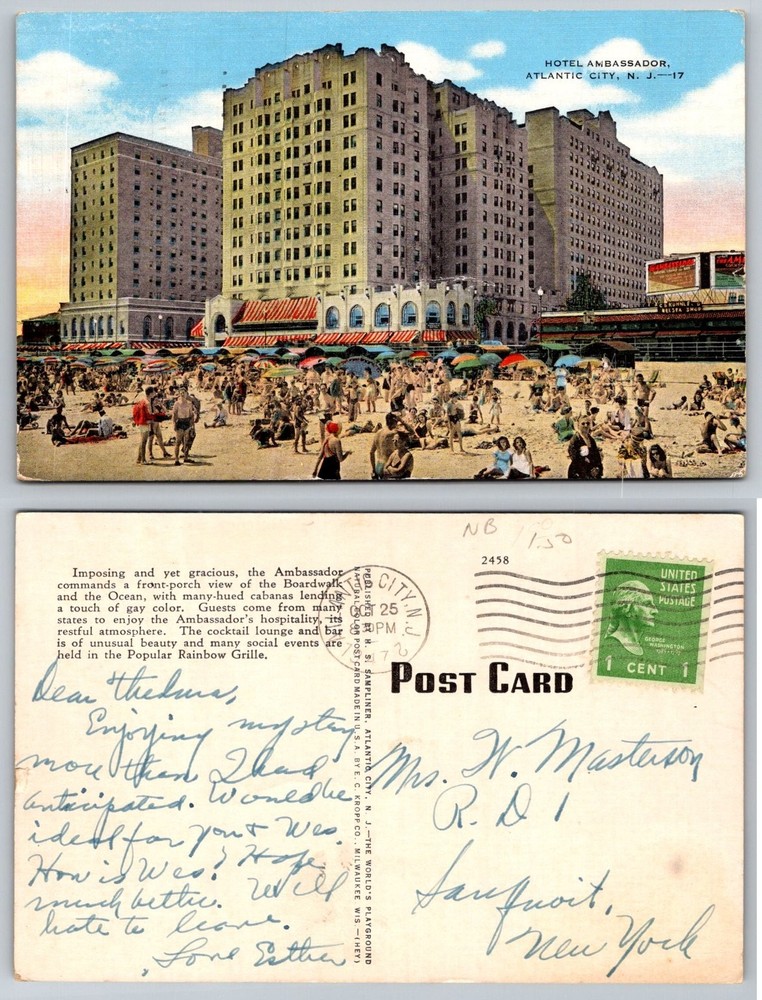 HOTEL AMBASSADOR,
ATLANTIC CITY, N. J.—17
NB
1.50
2458
Imposing and yet gracious, the Ambassador
commands a front-porch view of the Boardwalk
and the Ocean, with many-hued cabanas lending
a touch of gay color. Guests come from many
states to enjoy the Ambassador's hospitality, its
restful atmosphere. The cocktail lounge and bar
is of unusual beauty and many social events are
held in the Popular Rainbow Grille.
CITY, N.J.
OCT 25
PM
UNITED
STATES
POSTAGE
GEORGE
WASHINGTON
1 CENT 1
POST CARD
PUBLISHED BY H. S. SAMPLINER, ATLANTIC CITY, N. J.—THE WORLD'S PLAYGROUND
NATURAL COLOR POST CARD MADE IN U. S. A. BY E. C. KROPP CO., MILWAUKEE, WIS.—(HEY)
Dear Thelma,
Enjoying my stay
more than I had
anticipated. Would be
ideal for you & Wes.
How is Wes? Hope
much better. Will
hate to leave.
Love Esther
Mrs. W. Masterson
R. D 1
Sauquoit,
New York